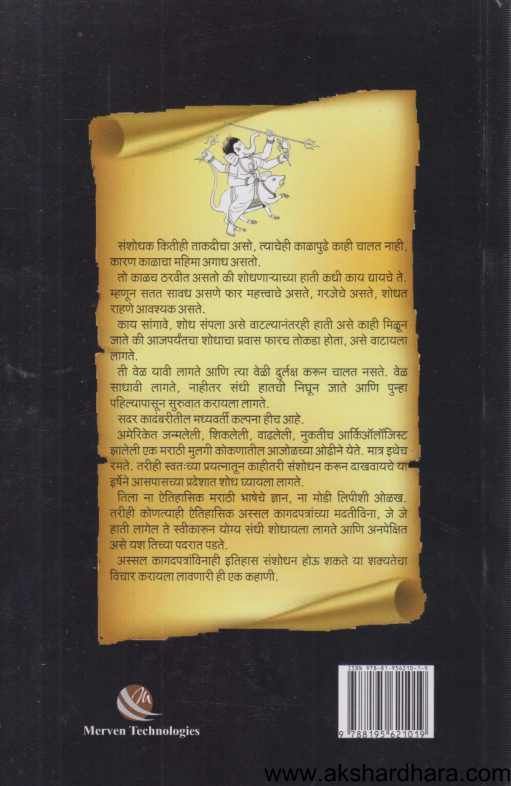 संशोधक कितीही ताकदीचा असो, त्याचेही काळापुढे काही चालत नाही.
कारण काळाचा महिमा अगाध असतो.
तो काळच ठरवीत असतो की शोधणाऱ्याच्या हाती कधी काय द्यायचे ते.
म्हणून सतत सावध असणे फार महत्त्वाचे असते, गरजेचे असते, शोधत
राहणे आवश्यक असते.
काय सांगावे, शोध संपला असे वाटल्यानंतरही हाती असे काही मिळून
जाते की आजपर्यंतचा शोधाचा प्रवास फारच तोकडा होता, असे वाटायला
लागते.
ती वेळ यावी लागते आणि त्या वेळी दुर्लक्ष करून चालत नसते. वेळ
साधावी लागते, नाहीतर संधी हातची निघून जाते आणि पुन्हा
पहिल्यापासून सुरुवात करायला लागते.
सदर कादंबरीतील मध्यवर्ती कल्पना हीच आहे.
अमेरिकेत जन्मलेली, शिकलेली, वाढलेली, नुकतीच आर्किऑलॉजिस्ट
झालेली एक मराठी मुलगी कोकणातील आजोळच्या ओढीने येते. मात्र इथेच
रमते. तरीही स्वतःच्या प्रयत्नातून काहीतरी संशोधन करून दाखवायचे या
इर्षेने आसपासच्या प्रदेशात शोध घ्यायला लागते.
तिला ना ऐतिहासिक मराठी भाषेचे ज्ञान, ना मोडी लिपीशी ओळख.
तरीही कोणत्याही ऐतिहासिक अस्सल कागदपत्रांच्या मदतीविना, जे जे
हाती लागेल ते स्वीकारून योग्य संधी शोधायला लागते आणि अनपेक्षित
असे यश तिच्या पदरात पडते.
अस्सल कागदपत्रांविनाही इतिहास संशोधन होऊ शकते या शक्यतेचा
विचार करायला लावणारी ही एक कहाणी.
Merven Technologies
ISBN 978-81-956210-1-9
9 788195 621019
www.akshardhara.com